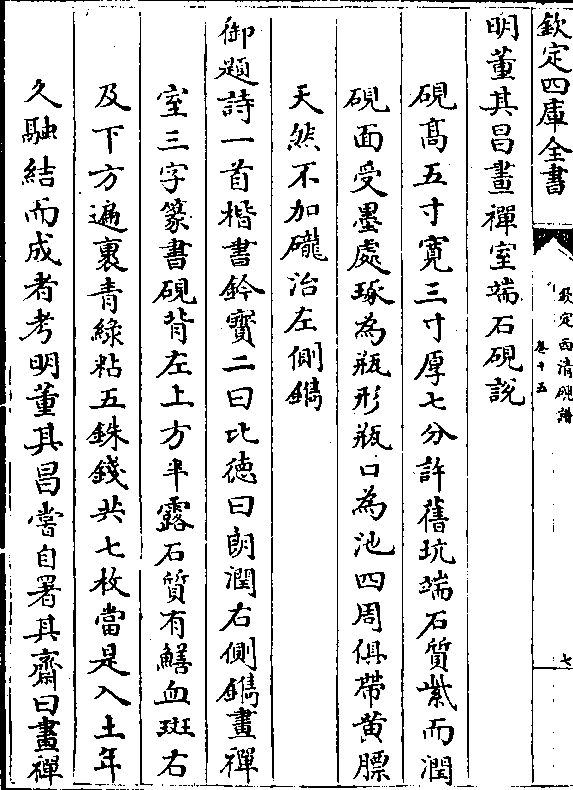 欽定四庫全書
欽定西清硯譜
卷十五
七
明董其昌畫禪室端石硯說
硯高五寸寛三寸厚七分許舊坑端石質紫而潤
硯面受墨處琢為瓶形瓶口為池四周俱帶黄臕
天然不加礲治左側鐫
御題詩一首楷書鈐寳二曰比徳曰朗潤右側鐫畫禪
室三字篆書硯背左上方半露石質有鱔血斑右
及下方遍裹青綠粘五銖錢共七枚當是入土年
久融結而成者考明董其昌嘗自署其齋曰畫禪